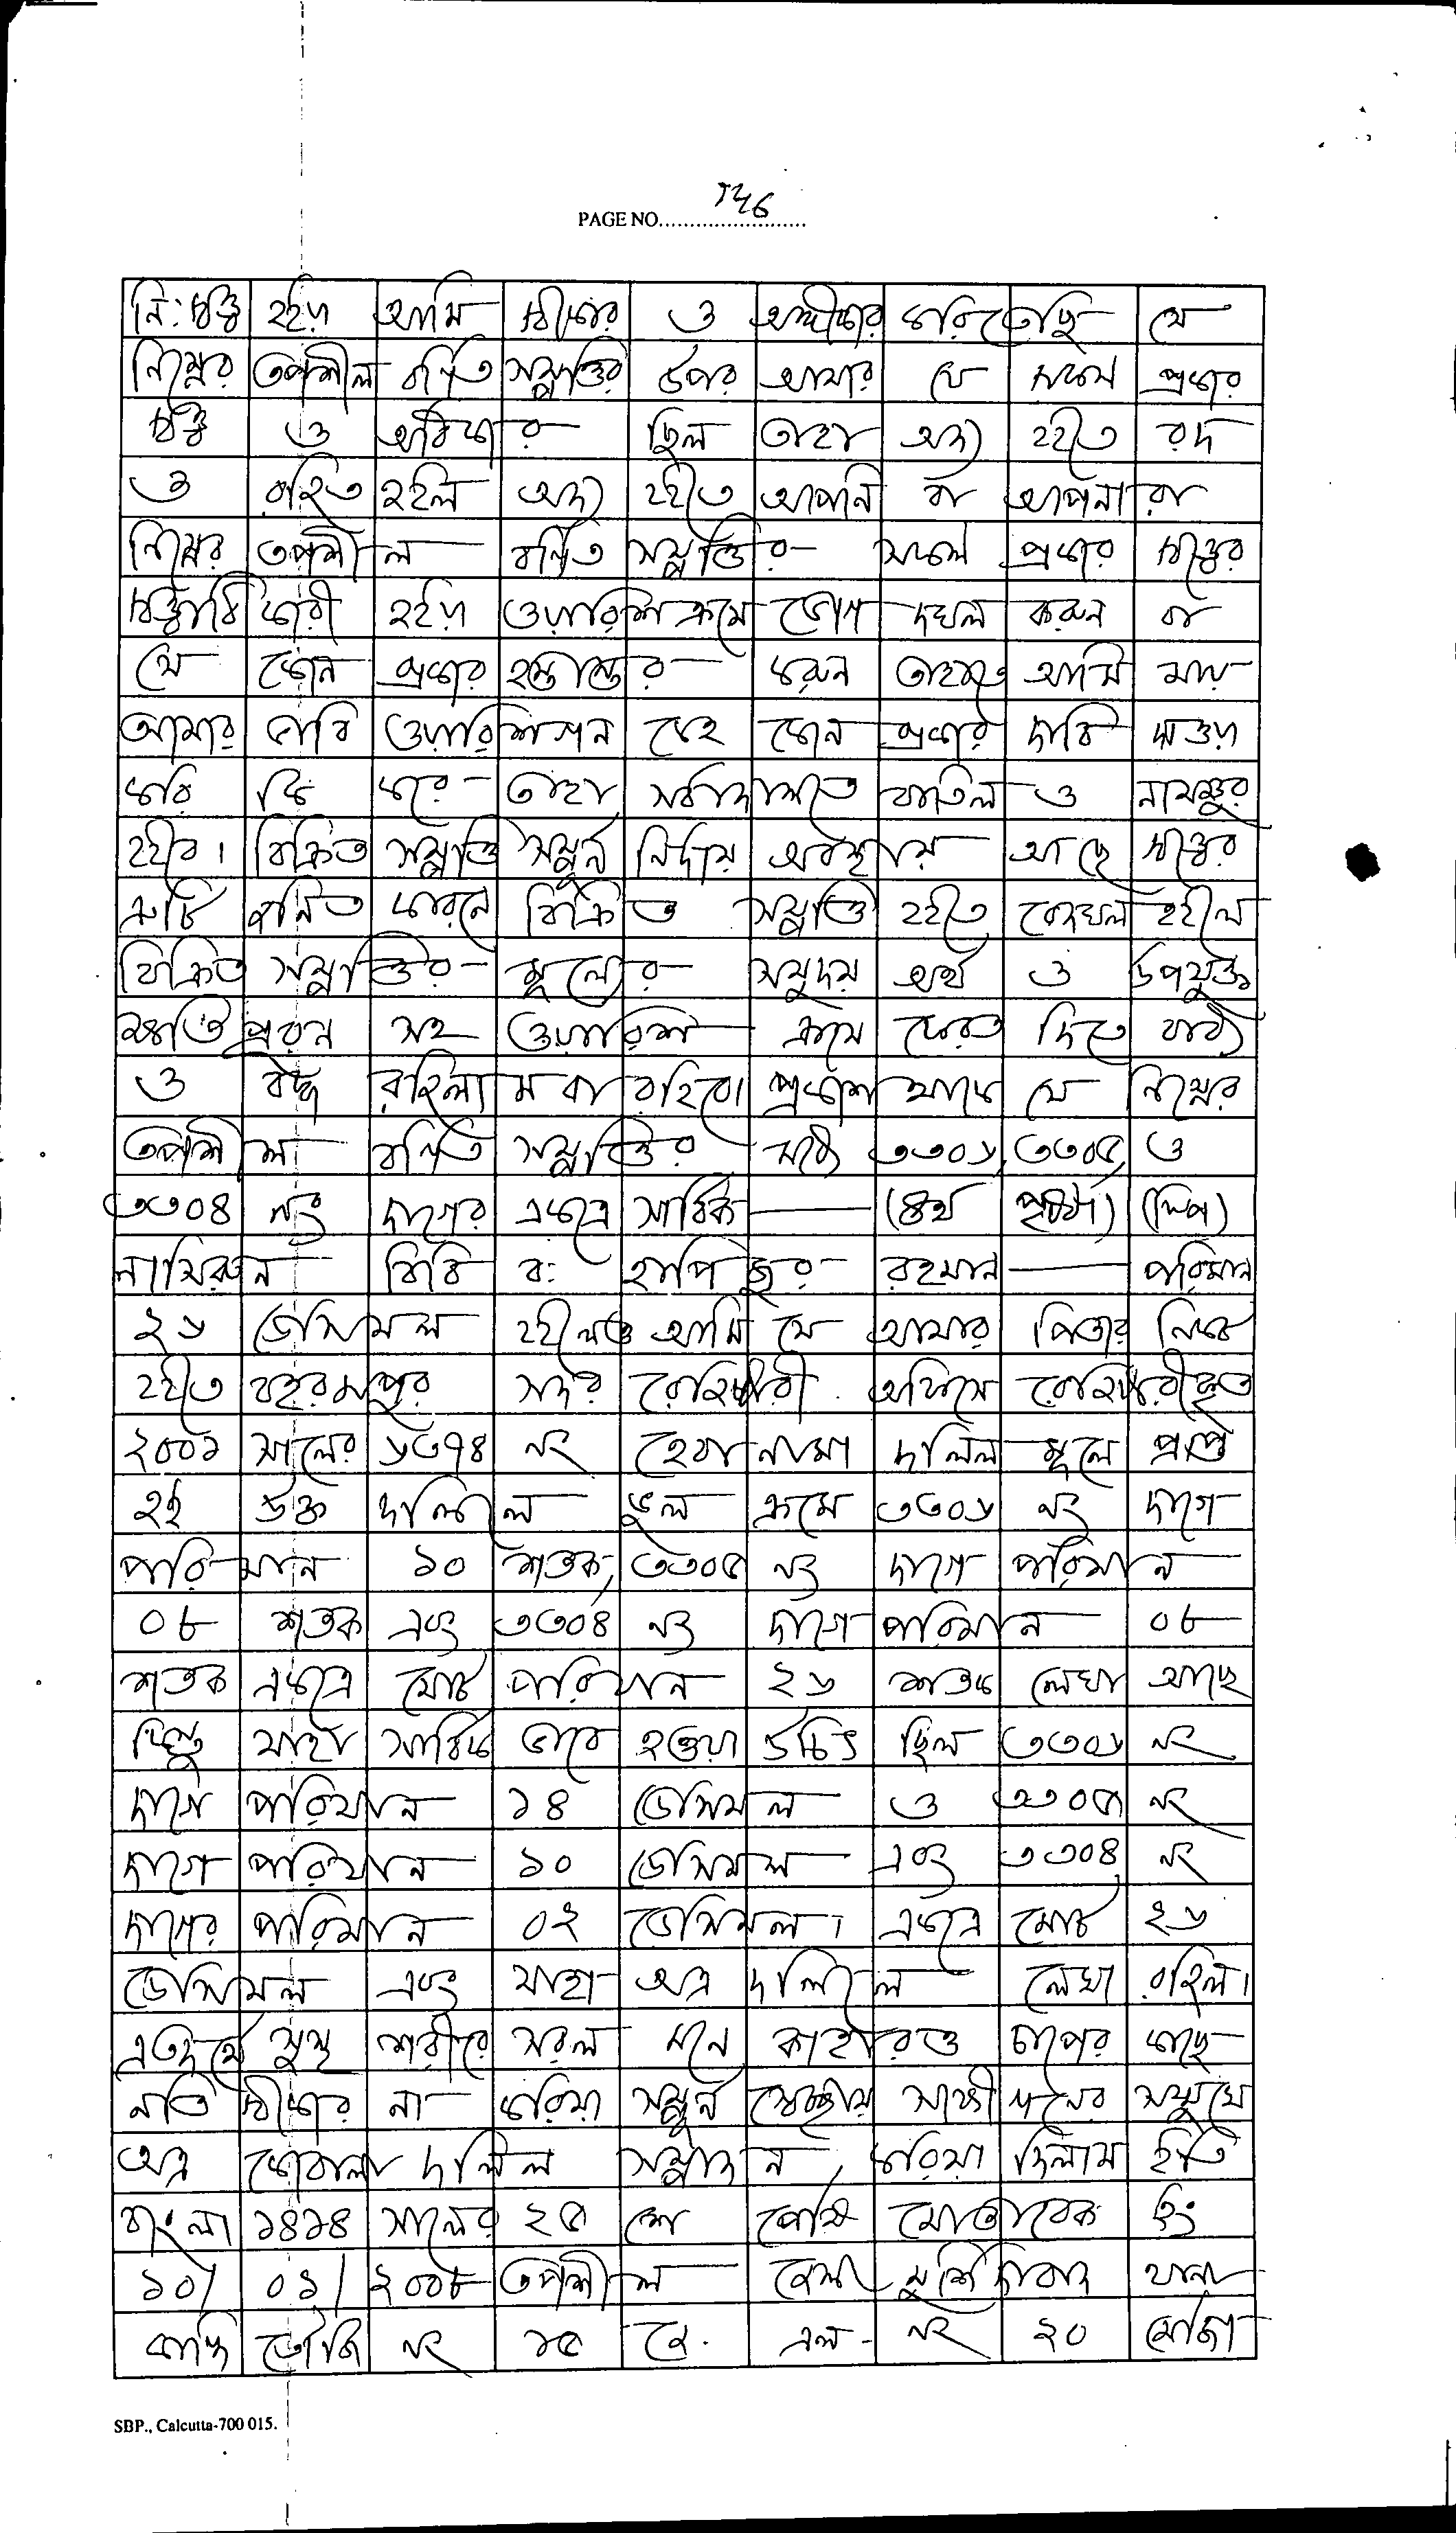 PAGE NO. 746
নি:স্বত্ত্ব হইয়া আমি স্বীকার ও অঙ্গীকার করিতেছি যে
নিম্নের তপশীল বর্নিত সম্পত্তির উপর আমার যে সকল প্রকার
স্বত্ত্ব ও অধিকার ছিল তাহা অদ্য হইতে রদ
ও রহিত হইল অদ্য হইতে আপনি বা আপনারা
নিম্নের তপশীল বর্নিত সম্পত্তির সকল প্রকার স্বত্ত্বের
স্বত্ত্বাধিকারী হইয়া ওয়ারিশ ক্রমে ভোগ দখল করুন বা
যে কোন প্রকার হস্তান্তর করুন তাহাতে আমি মায়
আমার ভাবি ওয়ারিশগন কেহ কোন প্রকার দাবি দাওয়া
করি কি করে তাহা সর্বাদালতে বাতিল ও নামঞ্জুর
হইবে। বিক্রিত সম্পত্তি সম্পুর্ন নির্দায় অবস্থায় আছে স্বত্ত্বের
ত্রুটি জনিত কারনে বিক্রিত সম্পত্তি হইতে বেদখল হইলে
বিক্রিত সম্পত্তির মূল্যের সমুদয় অর্থ ও উপযুক্ত
ক্ষতি পুরন সহ ওয়ারিশ ক্রমে ফেরত দিতে বাধ্য
ও বদ্ধ রহিলাম বা রহিবো। প্রকাশ থাকে যে নিম্নের
তপশীল বর্নিত সম্পত্তির মধ্যে ৩৩০৬, ৩৩০৫, ও
৩৩০৪ নং দাগের একত্রে সার্বিক (৪র্থ পৃষ্ঠা)
নাসিরুন বিবি ব: হাপিজুর রহমান পরিমান
২৬ ডেসিমল হইলেও আমি যে আমার পিতার নিকট
হইতে বহরমপুর সদর রেজিষ্টারী অফিসে রেজিষ্টারীকৃত
২০০১ সালের ৬৩৭৪ নং হেবা নামা দলিল মূলে প্রাপ্ত
হই উক্ত দলিলে ভুল ক্রমে ৩৩০৬ নং দাগে
পরিমান ১০ শতক, ৩৩০৫ নং দাগে পরিমান
০৮ শতক এবং ৩৩০৪ নং দাগে পরিমান ০৮
শতক একত্রে মোট পরিমান ২৬ শতক লেখা আছে
কিন্তু যাহা সার্বিক ভাবে হওয়া উচিৎ ছিল ৩৩০৬ নং
দাগে পরিমান ১৪ ডেসিমল ও ৩৩০৫ নং
দাগে পরিমান ১০ ডেসিমল এবং ৩৩০৪ নং
দাগের পরিমান ০২ ডেসিমল। একত্রে মোট ২৬
ডেসিমল এবং যাহা অত্র দলিলে লেখা রহিল।
এতদর্থে সুস্থ শরীরে সরল মনে কাহারও চাপের কাছে
নতি স্বীকার না করিয়া সম্পুর্ন স্বেচ্ছায় সাক্ষীগনের সম্মুখে
অত্র কোবালা দলিল সম্পাদন করিয়া দিলাম ইতি
বাংলা ১৪১৪ সালের ২৫ শে পৌষ মোতাবেক ইং
১০/ ০১/ ২০০৮ তপশীল জেলা মুর্শিদাবাদ থানা
কান্দি তৌজি নং ১৫ জে. এল- নং ২০ মৌজা
SBP., Calcutta-700 015.